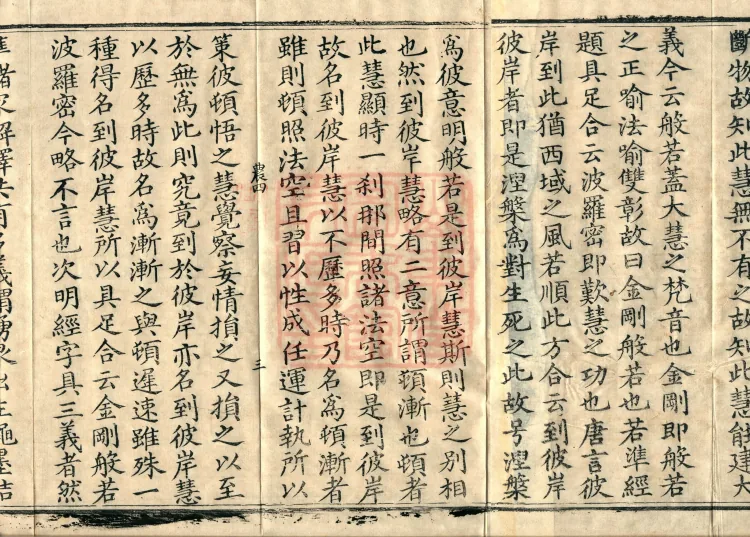 斷物故知此慧無不有之故知此慧能建大
義今云般若蓋大慧之梵音也金剛即般若
之正喻法喻雙彰故曰金剛般若也若準經
題具足合云波羅密即歎慧之功也唐言彼
岸到此猶西域之風若順此方合云到彼岸
彼岸者即是涅槃爲對生死之此故号涅槃
爲彼意明般若是到彼岸慧斯則慧之別相
也然到彼岸慧略有二意所謂頓漸也頓者
此慧顯時一刹那間照諸法空即是到彼岸
故名到彼岸慧以不歷多時乃名爲頓漸者
雖則頓照法空且習以性成任運計執所以
農四 三
策彼頓悟之慧覺察妄情損之又損之以至
於無爲此則究竟到於彼岸亦名到彼岸慧
以歷多時故名爲漸漸之與頓遲速雖殊一
種得名到彼岸慧所以具足合云金剛般若
波羅密今略不言也次明經字具三義者然